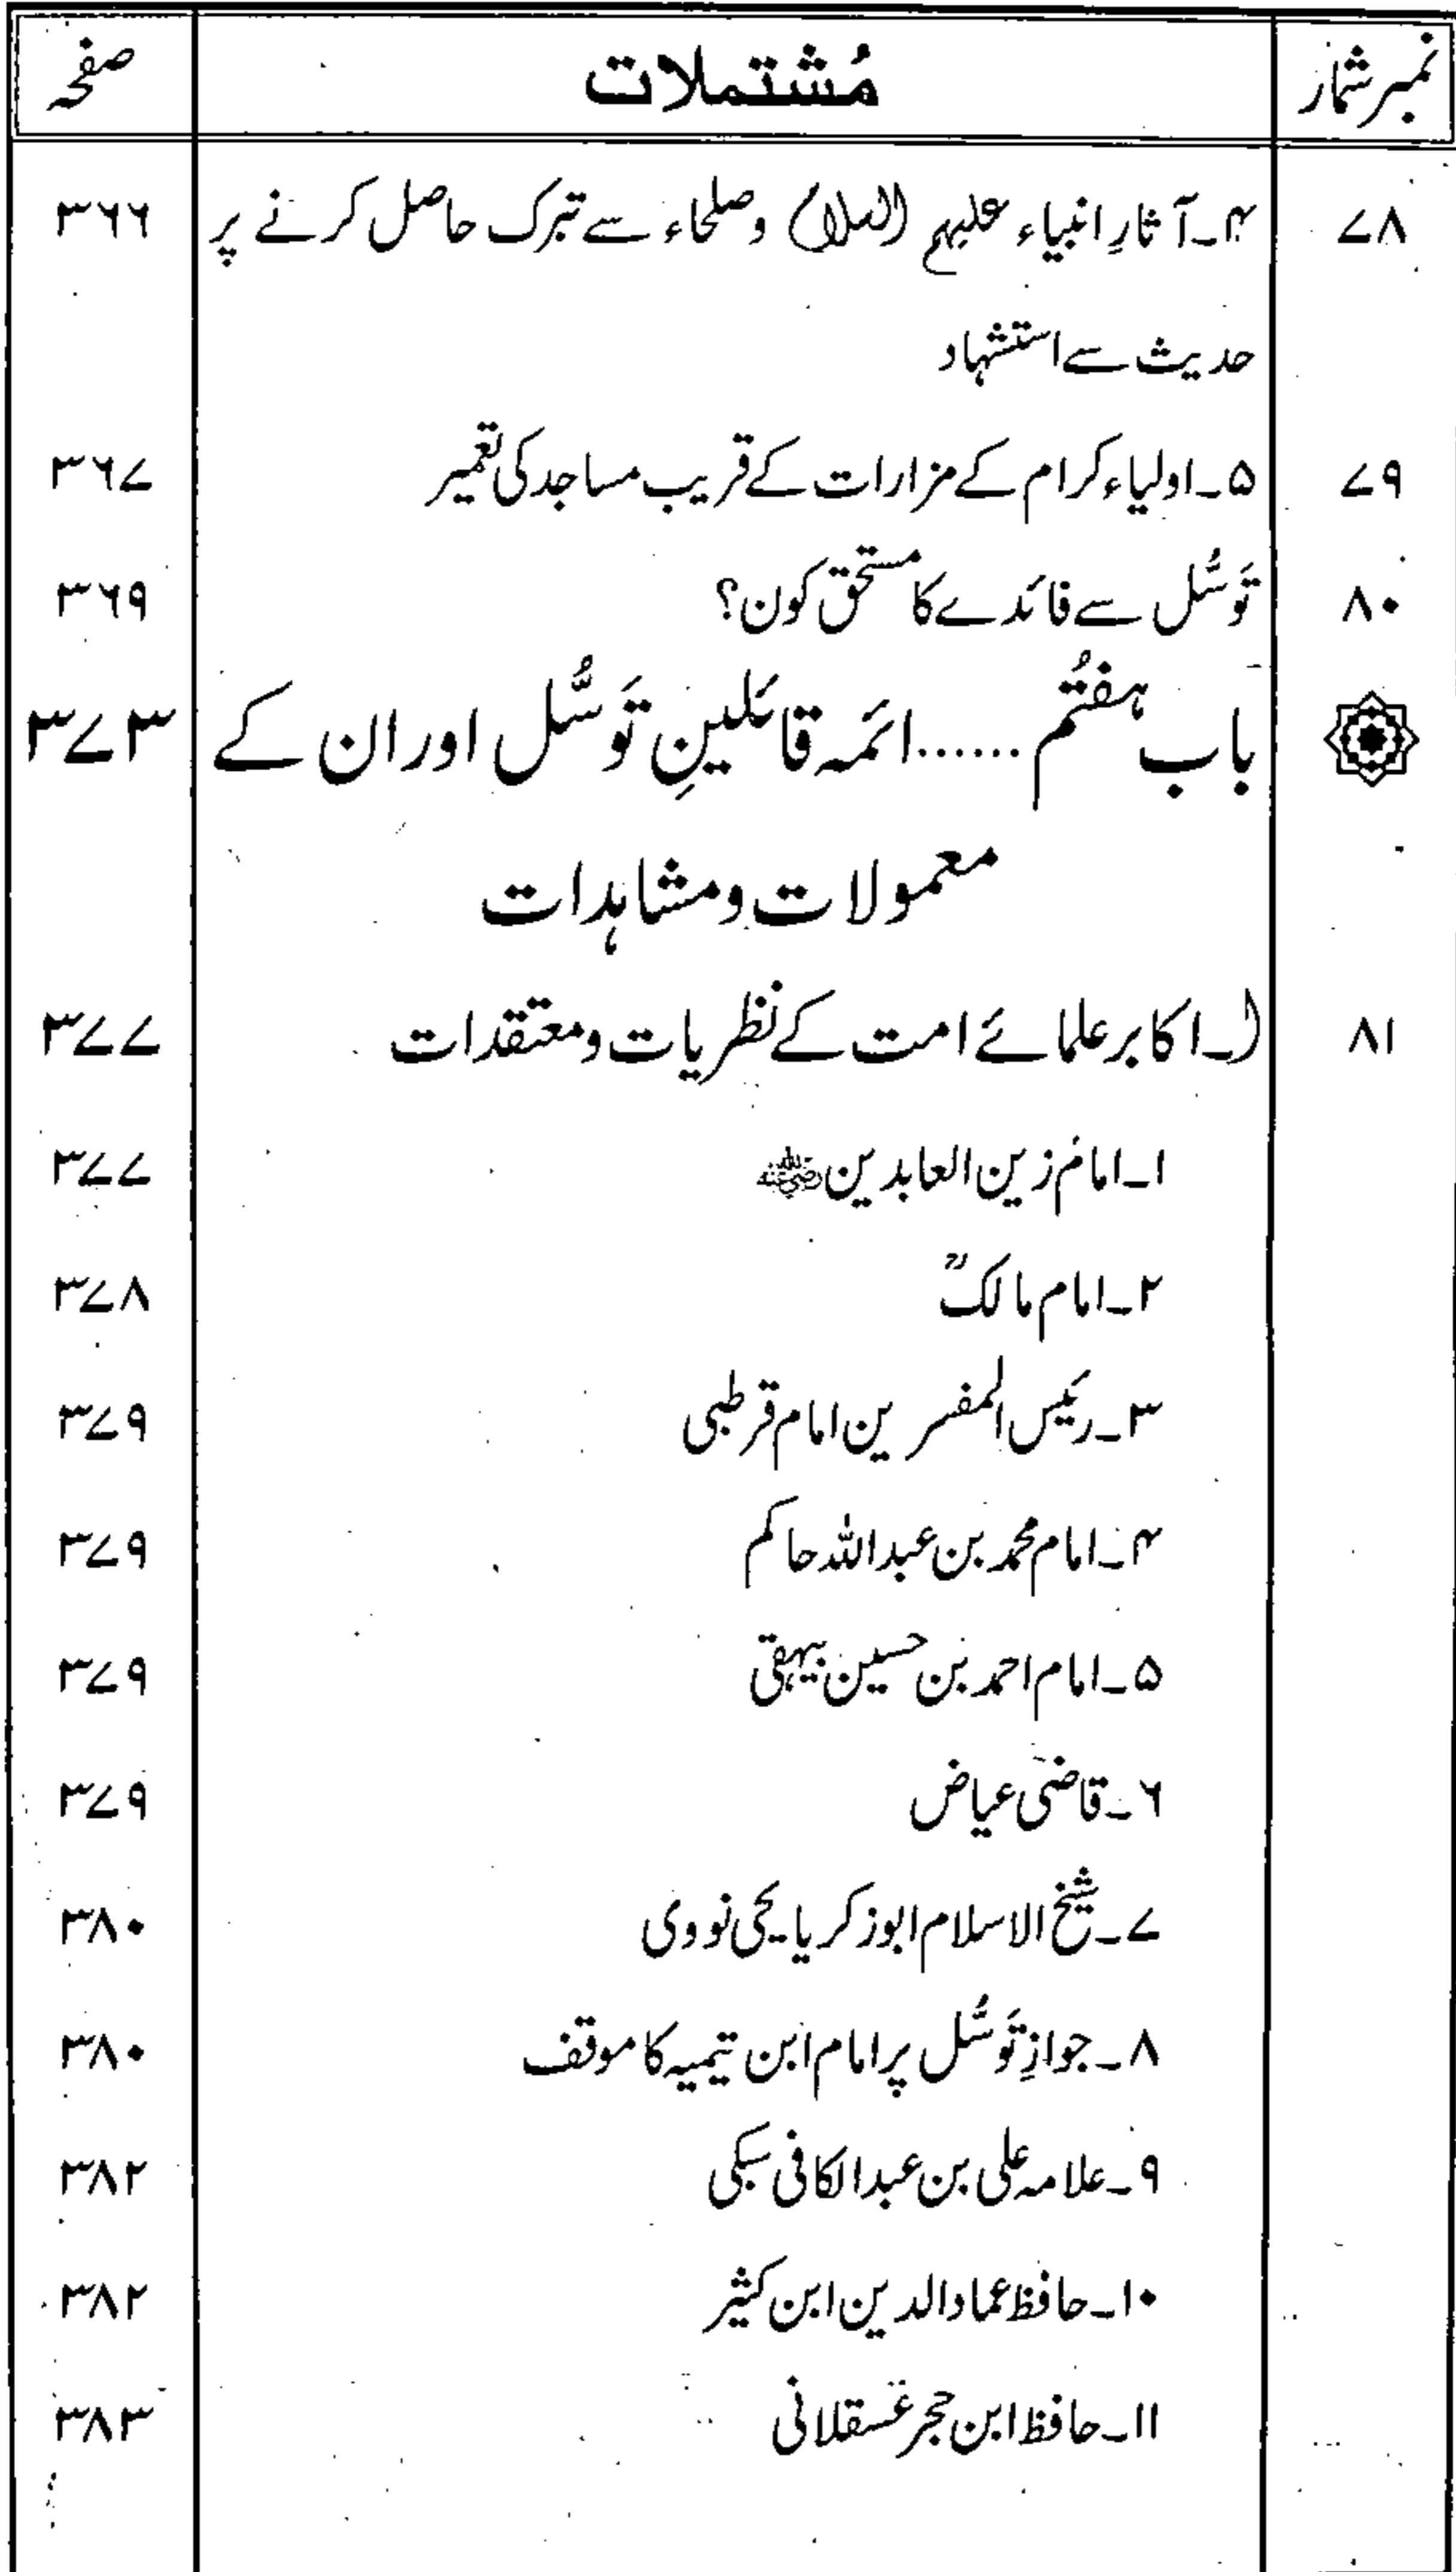 نمبر شمار مُشتملات صفحہ
۷۸ ۴۔ آثارِ انبیاء علیہم السلام وصلحاء سے تبرک حاصل کرنے پر ۳۶۶
حدیث سے استشہاد
۷۹ ۵۔ اولیاء کرام کے مزارات کے قریب مساجد کی تعمیر ۳۶۷
۸۰ تَوسُّل سے فائدے کا مستحق کون؟ ۳۶۹
باب ہفتُم ......ائمہ قائلینِ تَوسُّل اور ان کے ۳۷۳
معمولات و مشاہدات
۸۱ ا۔ اکابر علمائے امت کے نظریات و معتقدات ۳۷۷
۱۔ امام زین العابدین رضی اللہ عنہ ۳۷۷
۲۔ امام مالکؒ ۳۷۸
۳۔ رئیس المفسرین امام قرطبی ۳۷۹
۴۔ امام محمد بن عبداللہ حاکم ۳۷۹
۵۔ امام احمد بن حسین بیہقی ۳۷۹
۶۔ قاضی عیاض ۳۷۹
۷۔ شیخ الاسلام ابوزکریا یحیٰ نووی ۳۸۰
۸۔ جوازِ تَوسُّل پر امام ابن تیمیہ کا موقف ۳۸۰
۹۔ علامہ علی بن عبدالکافی سبکی ۳۸۲
۱۰۔ حافظ عماد الدین ابن کثیر ۳۸۲
۱۱۔ حافظ ابن حجر عسقلانی ۳۸۳